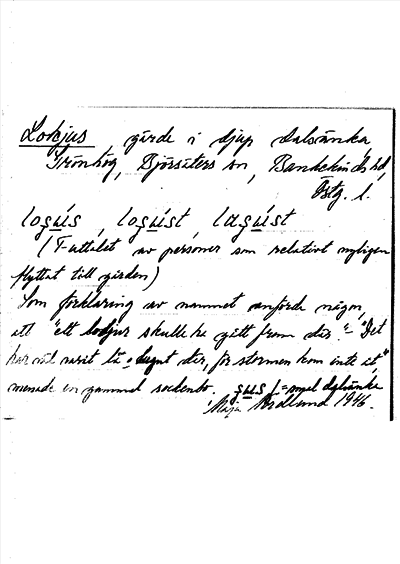 Lokjus, gärde i djup dalsänka,
Grönhög, Björsäters sn, Bankekinds hd,
Östg. l.
loşu̱s, loşu̱st, laşu̱st
(T-uttalet av personer som relativt nyligen
flyttat till gården)
Som förklaring av namnet anförde någon,
att "ett lodjur skulle ha gått fram där" "Det
har väl varit lä o lugnt där, för stormen kom inte åt,"
menade en gammal sockenbo. şu̱s f. = smal dalsänka
Maja Nordlund 1946.